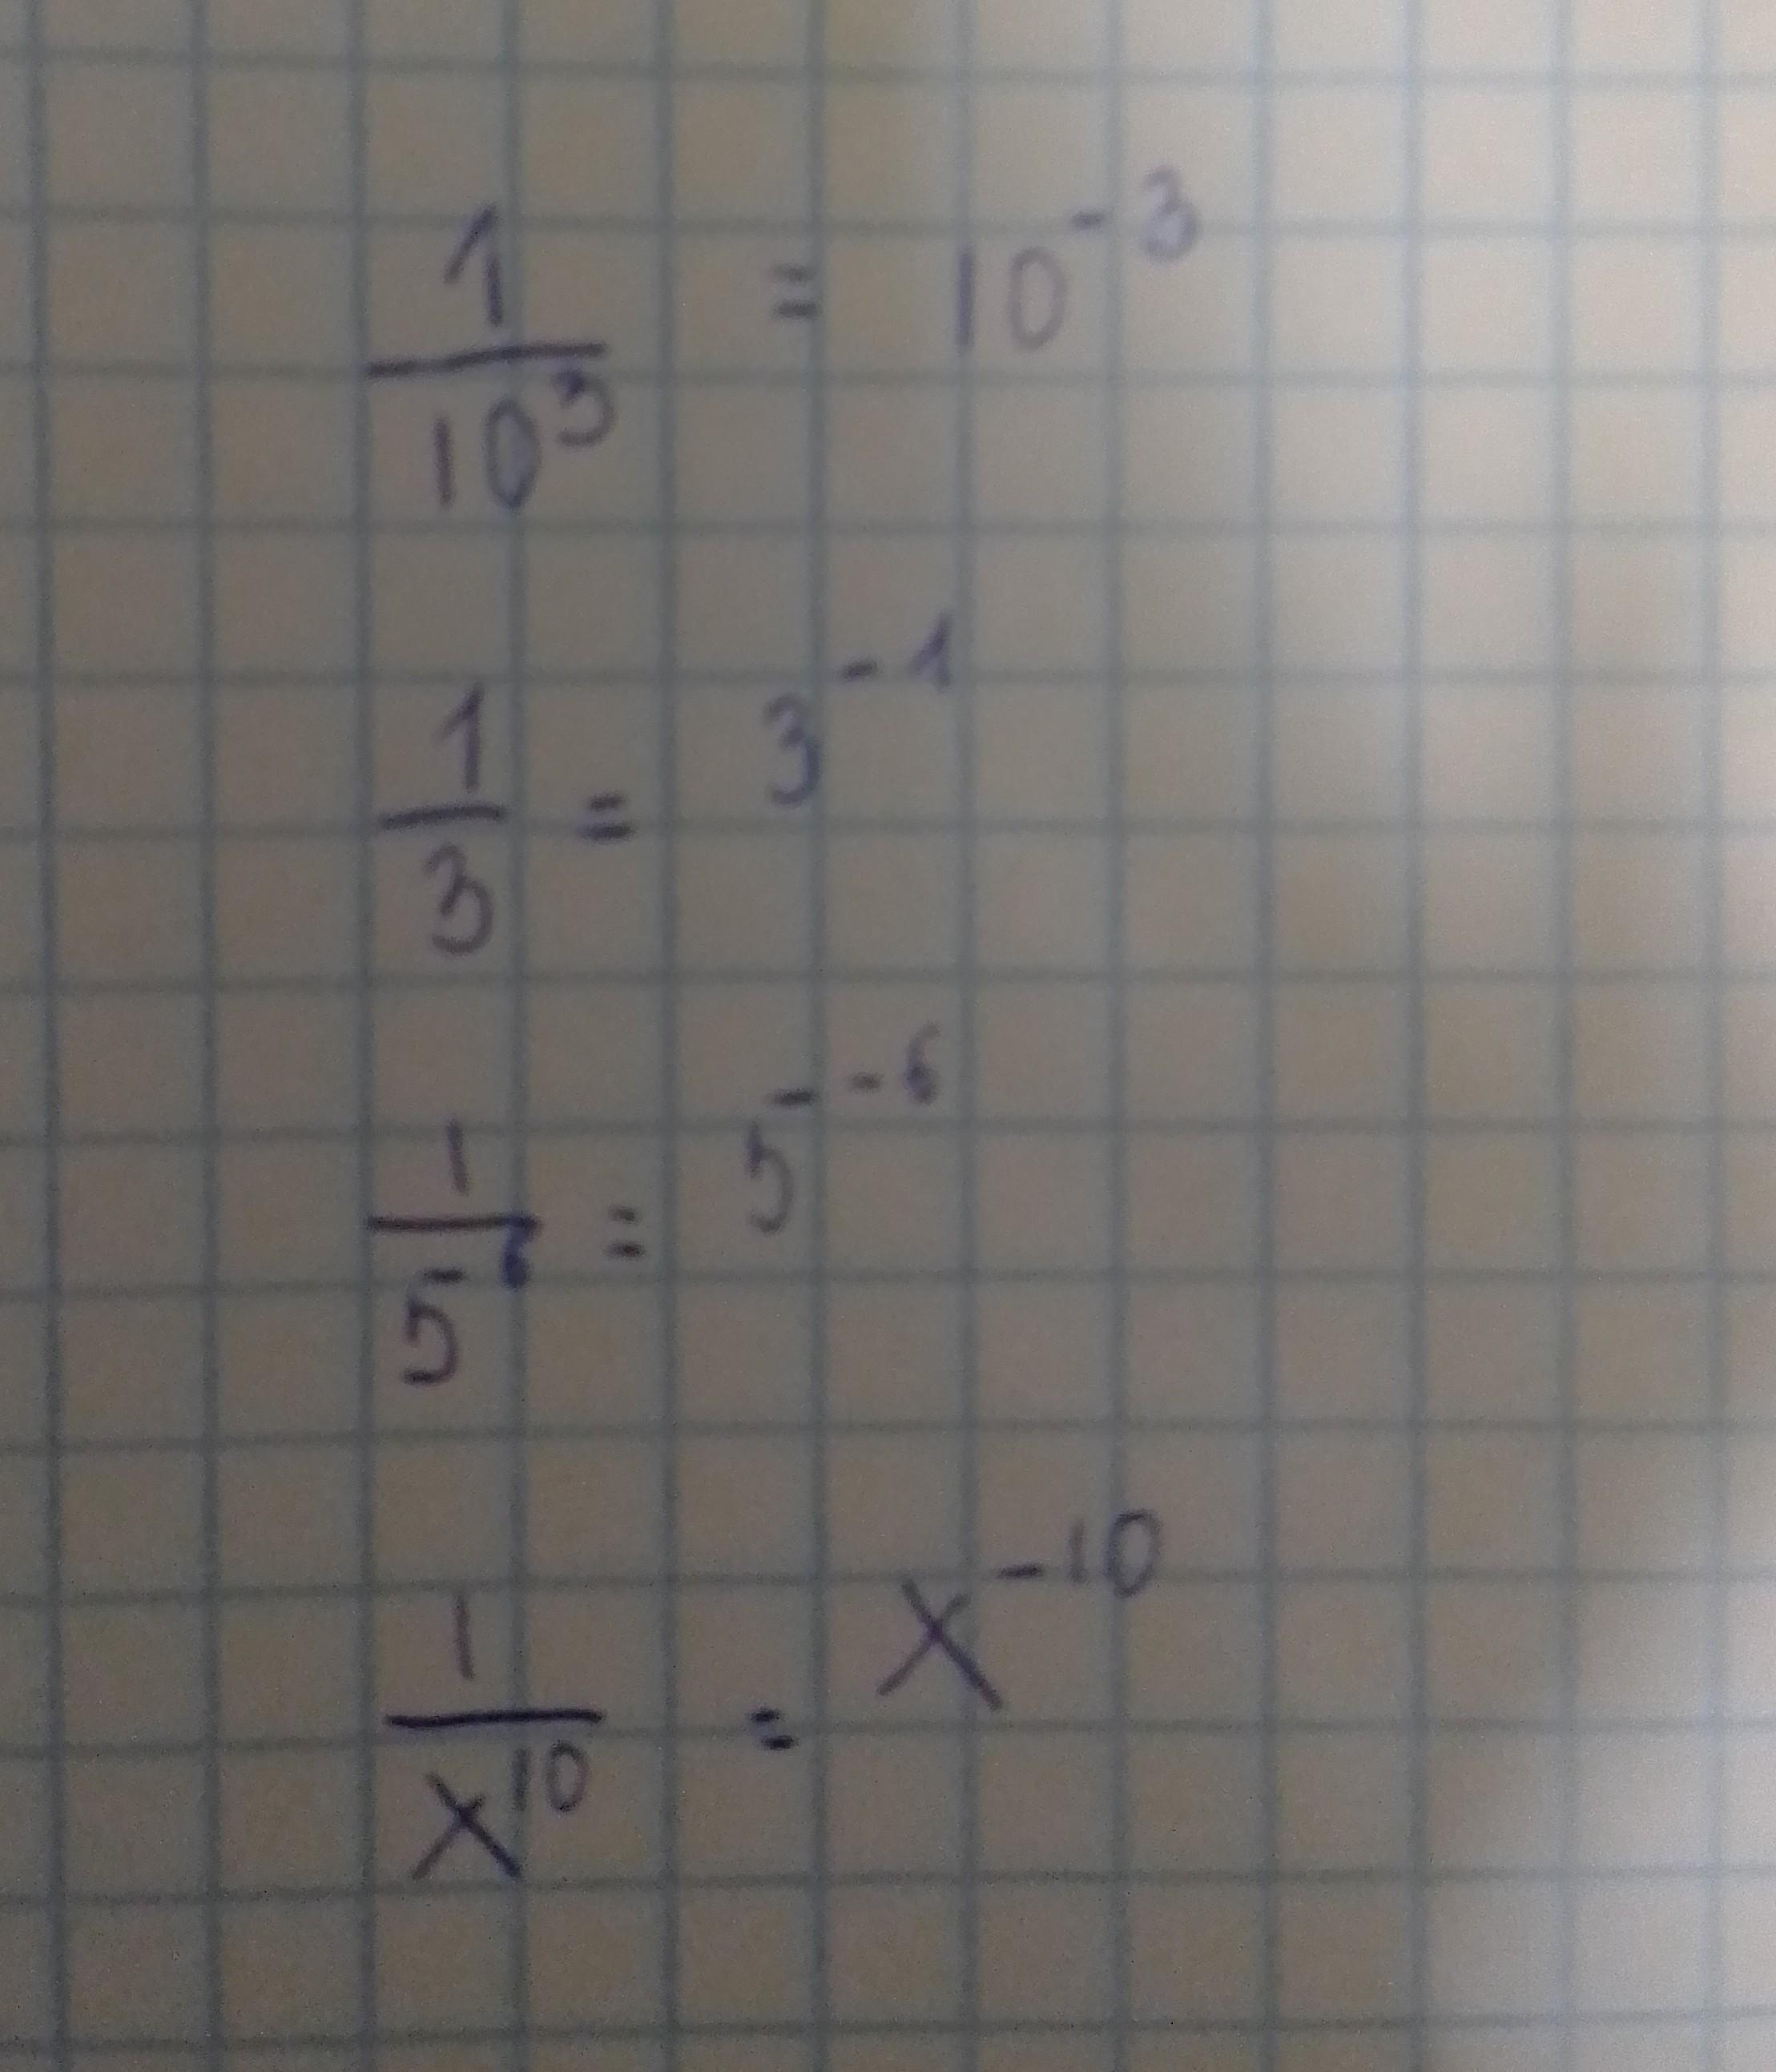 1/10³ = 10⁻³
1/3 = 3⁻¹
1/5⁶ = 5⁻⁶
1/x¹⁰ = x⁻¹⁰